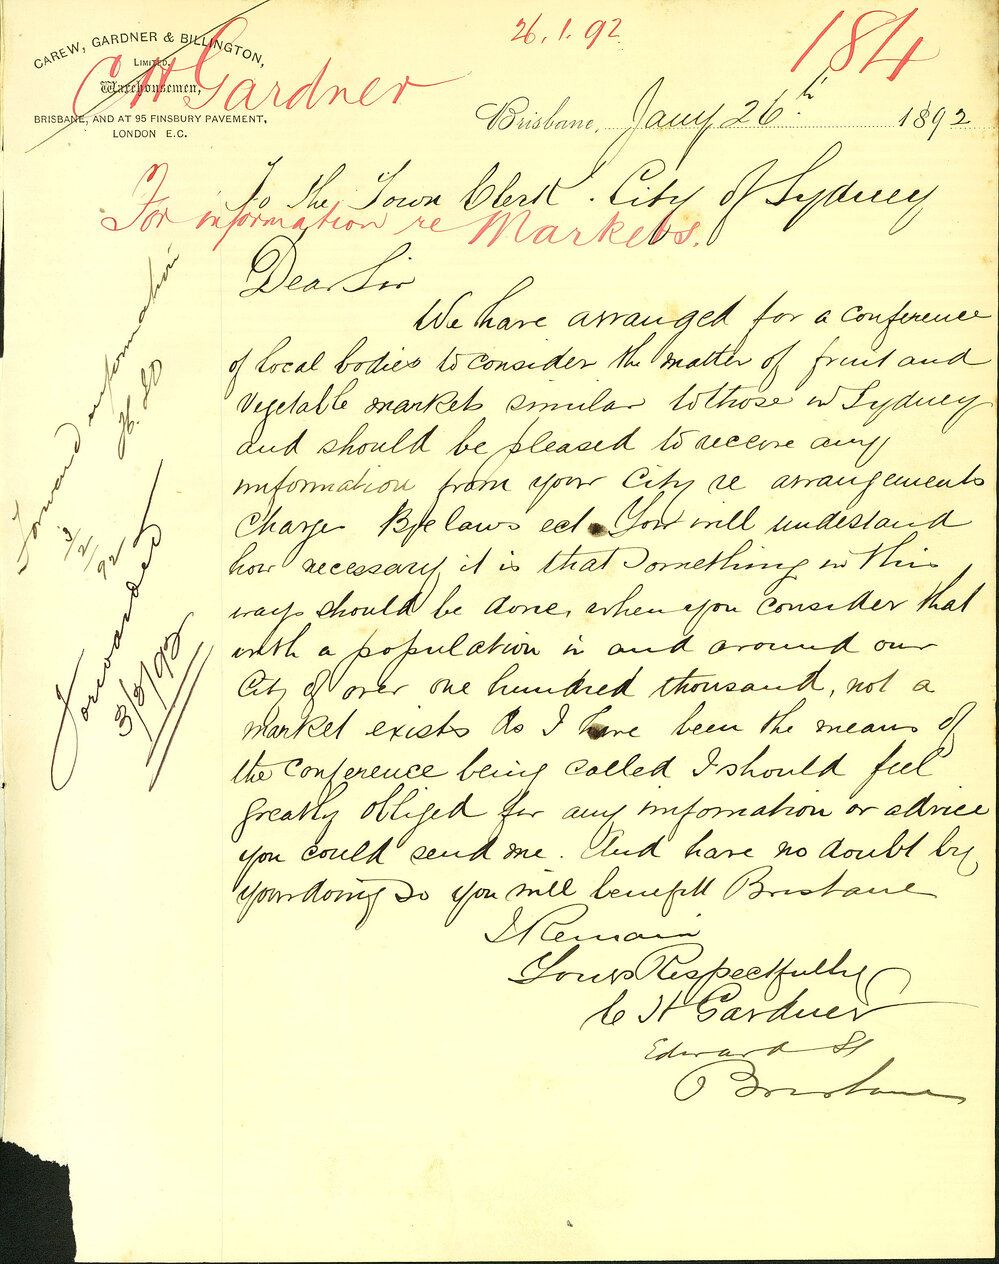 26.1.92
184
CAREW, GARDNER & BILLINGTON,
LIMITED,
Warehousemen,
BRISBANE, AND AT 95 FINSBURY PAVEMENT,
LONDON E.C.
C H Gardner
Brisbane, Jany 26th 1892
To the Town Clerk . City of Sydney
For information re Markets.
Dear Sir
We have arranged for a conference
of local bodies to consider the matter of fruit and
vegetable markets similar to those in Sydney
and should be pleased to receive any
information from your City re arrangements
Charges Byelaws ect. You will undestand
how necessary it is that something in this
way should be done, when you consider that
with a population in and around our
City of over one hundred thousand, not a
market exists As I have been the means of
the conference being called I should feel
greatly obliged for any information or advice
you could send me. And have no doubt by
your doing so you will benefitt Brisbane
I Remain
Yours Respectfully
C H Gardner
Edward St
Brisbane
Forward information
3/2/92
Forwarded
3/2/92